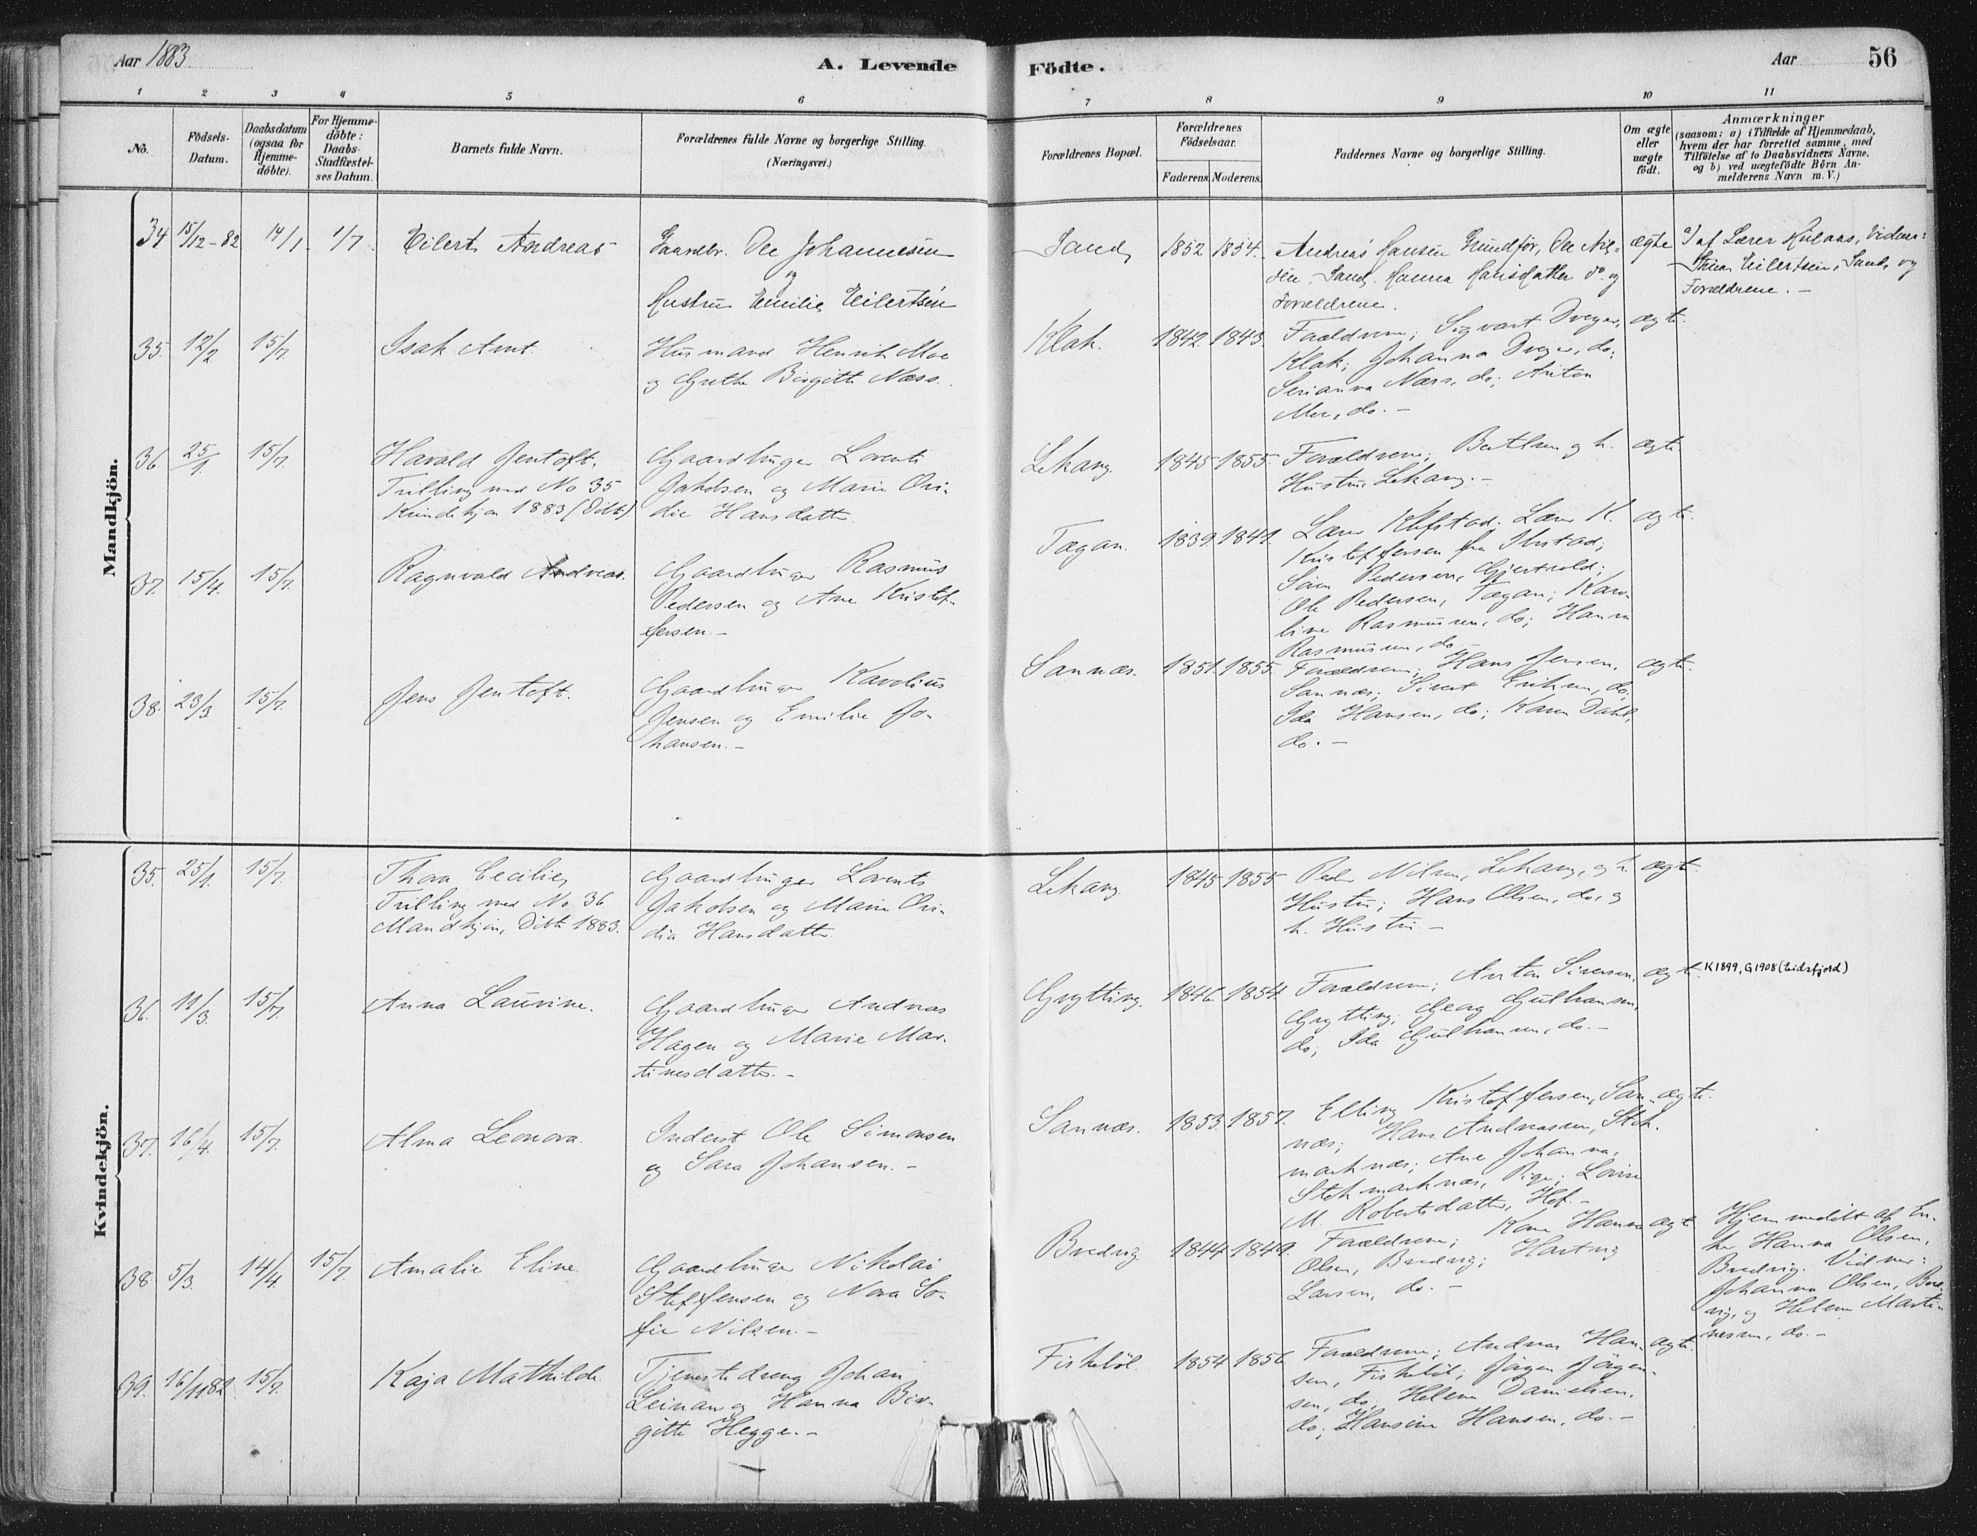 Aar 1883.
A. Levende
Födte.
Aar
56
1 2 3 4 5 6 7 8 9 10 11
No.
Födsels-
Datum.
Daabsdatum
(ogsaa for
Hjemme-
döbte).
For Hjemme-
döbte:
Daabs-
Stadfæstel-
ses Datum.
Barnets fulde Navn.
Forældrenes fulde Navne og borgerlige Stilling.
(Næringsvei.)
Forældrenes Bopæl.
Forældrenes
Födselsaar.
Faderens. Moderens.
Faddernes Navne og borgerlige Stilling.
Om ægte
eller
uægte
født.
Anmærkninger
(saasom: a) i Tilfælde af Hjemmedaab,
hvem der har forrettet samme, med
Tilföielse af to Daabsvidners Navne,
og b) ved uægtefödte Börn An-
melderens Navn m. V.)
Mandkjön.
34 15/12-82 14/1 1/7 Eilert Andreas
Gaardbr. Ole Johannesen
og
Hustru Emilie Eilertsen
Sand 1852 1854.
Andreas Hansen Ole Nil-
sen, Sand, Hanna Hansdatter do og
Forældrene.
ægte
af Lærer Vidner:
Eilertsen, Sand, og
Forældrene. -
35. 12/2 15/7. Isak Arnt.
Husmand Henrik Moe
og Grethe Birgitte Næss.
Klak. 1842. 1843.
Forældrene; Sigvart Dreyer,
Klak; Johanna Dreyer, do;
Serianna Næss, do; Anton
Moe, do. -
ægte.
36. 25/1. 15/7. Harald Jentoft.
Tvilling med No 35
Kvindekjøn 1883 (Döbte)
Gaardbruger Lorents
Jakobsen og Marie Ovi-
die Hansdatter.
Lekang 1845 1855.
Forældrene; Bertelsen og h.
Hustru Lekang. -
ægte.
37. 15/4. 15/7. Ragnvald Andreas.
Gaardbruger Rasmus
Pedersen og Ane Kristof-
fersen. -
Tøgan. 1839. 1841.
Lærer Klefstad. Lærer K.
Kristoffersen fra
Søren Pedersen,
Ole Pedersen, Tøgan; Karo-
line Rasmussen, do; Hanna
Rasmussen, do
ægte.
38. 23/3. 15/7. Jens Jentoft.
Gaardbruger Karolius
Jensen og Emilie Jo-
hansen. -
Sannæs. 1851. 1855.
Forældrene; Hans Jensen,
Sannæs; Sivert Eriksen, do;
Ida Hansen, do; Karen Dahl,
do. -
ægte.
Kvindekjön.
35. 25/1. 15/7. Thora Cecilie,
Tvilling med No 36
Mandkjøn, Döbte 1883.
Gaardbruger Lorents
Jakobsen og Marie Ovi-
dia Hansdatter.
Lekang 1845 1855
Peder Nilsen, Lekang, og h.
Hustru; Hans Olsen, do, og
h. Hustru. -
ægte.
36. 11/3. 15/7. Anna Laurine.
Gaardbruger Andreas
Hagen og Marie Mar-
tinesdatter. -
Grytting. 1846. 1854.
Forældrene; Anton Siversen,
Grytting; Georg Gulbransen,
do; Ida Gulbransen, do. -
ægte.
K1899, G1908 (Eidsfjord)
37. 16/4. 15/7. Alma Leonora.
Inderst Ole Simonsen
og Sara Johansen. -
Sannæs. 1853. 1857.
Elling Kristoffersen, San-
næs; Hans Andreasen, Stok-
marknæs; Ane Johanna,
Stokmarknæs, Pige; Lovise
M. Robertsdatter, Hof. -
ægte.
38. 5/3. 14/4. 15/7. Amalie Eline.
Gaardbruger Nikolai
Steffensen og Nora So-
fie Nilsen. -
Bredvig 1844 1849.
Forældrene; Kone Hanna
Olsen, Bredvig; Hartvig
Larsen, do. -
ægte
Hjemmedöbt af En-
ke Hanna Olsen,
Bredvig. Vidner:
Johanna Olsen, Bred-
vig, og Helene Marti-
nesen, do. -
39. 16/11 82. 15/7. Kaja Mathilde.
Tjenestedreng Johan
Leinan og Hanna Bir-
gitte Hegge. -
Fiskeböl. 1854 1856.
Forældrene; Andreas Han-
sen, Fiskeböl; Jörgen Jörgen-
sen, do; Helene Danielsen,
do; Hansine Hansen, do. -
ægte.